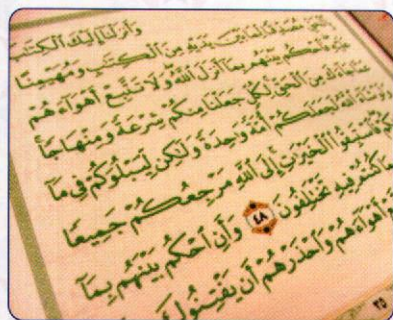 وَأَنزَلْنَا إِلَيْكَ الْكِتَٰبَ
بِالْحَقِّ مُصَدِّقًا لِّمَا بَيْنَ يَدَيْهِ مِنَ الْكِتَٰبِ وَمُهَيْمِنًا
عَلَيْهِ فَاحْكُم بَيْنَهُم بِمَا أَنزَلَ اللَّهُ وَلَا تَتَّبِعْ أَهْوَاءَهُمْ
عَمَّا جَاءَكَ مِنَ الْحَقِّ لِكُلٍّ جَعَلْنَا مِنكُمْ شِرْعَةً وَمِنْهَاجًا
وَلَوْ شَاءَ اللَّهُ لَجَعَلَكُمْ أُمَّةً وَٰحِدَةً وَلَٰكِن لِّيَبْلُوَكُمْ فِي مَا
فَاسْتَبِقُوا الْخَيْرَٰتِ إِلَى اللَّهِ مَرْجِعُكُمْ جَمِيعًا
كُنتُمْ فِيهِ تَخْتَلِفُونَ ٤٨ وَأَنِ احْكُم بَيْنَهُم بِمَا
أَهْوَاءَهُمْ وَاحْذَرْهُمْ أَن يَفْتِنُوكَ